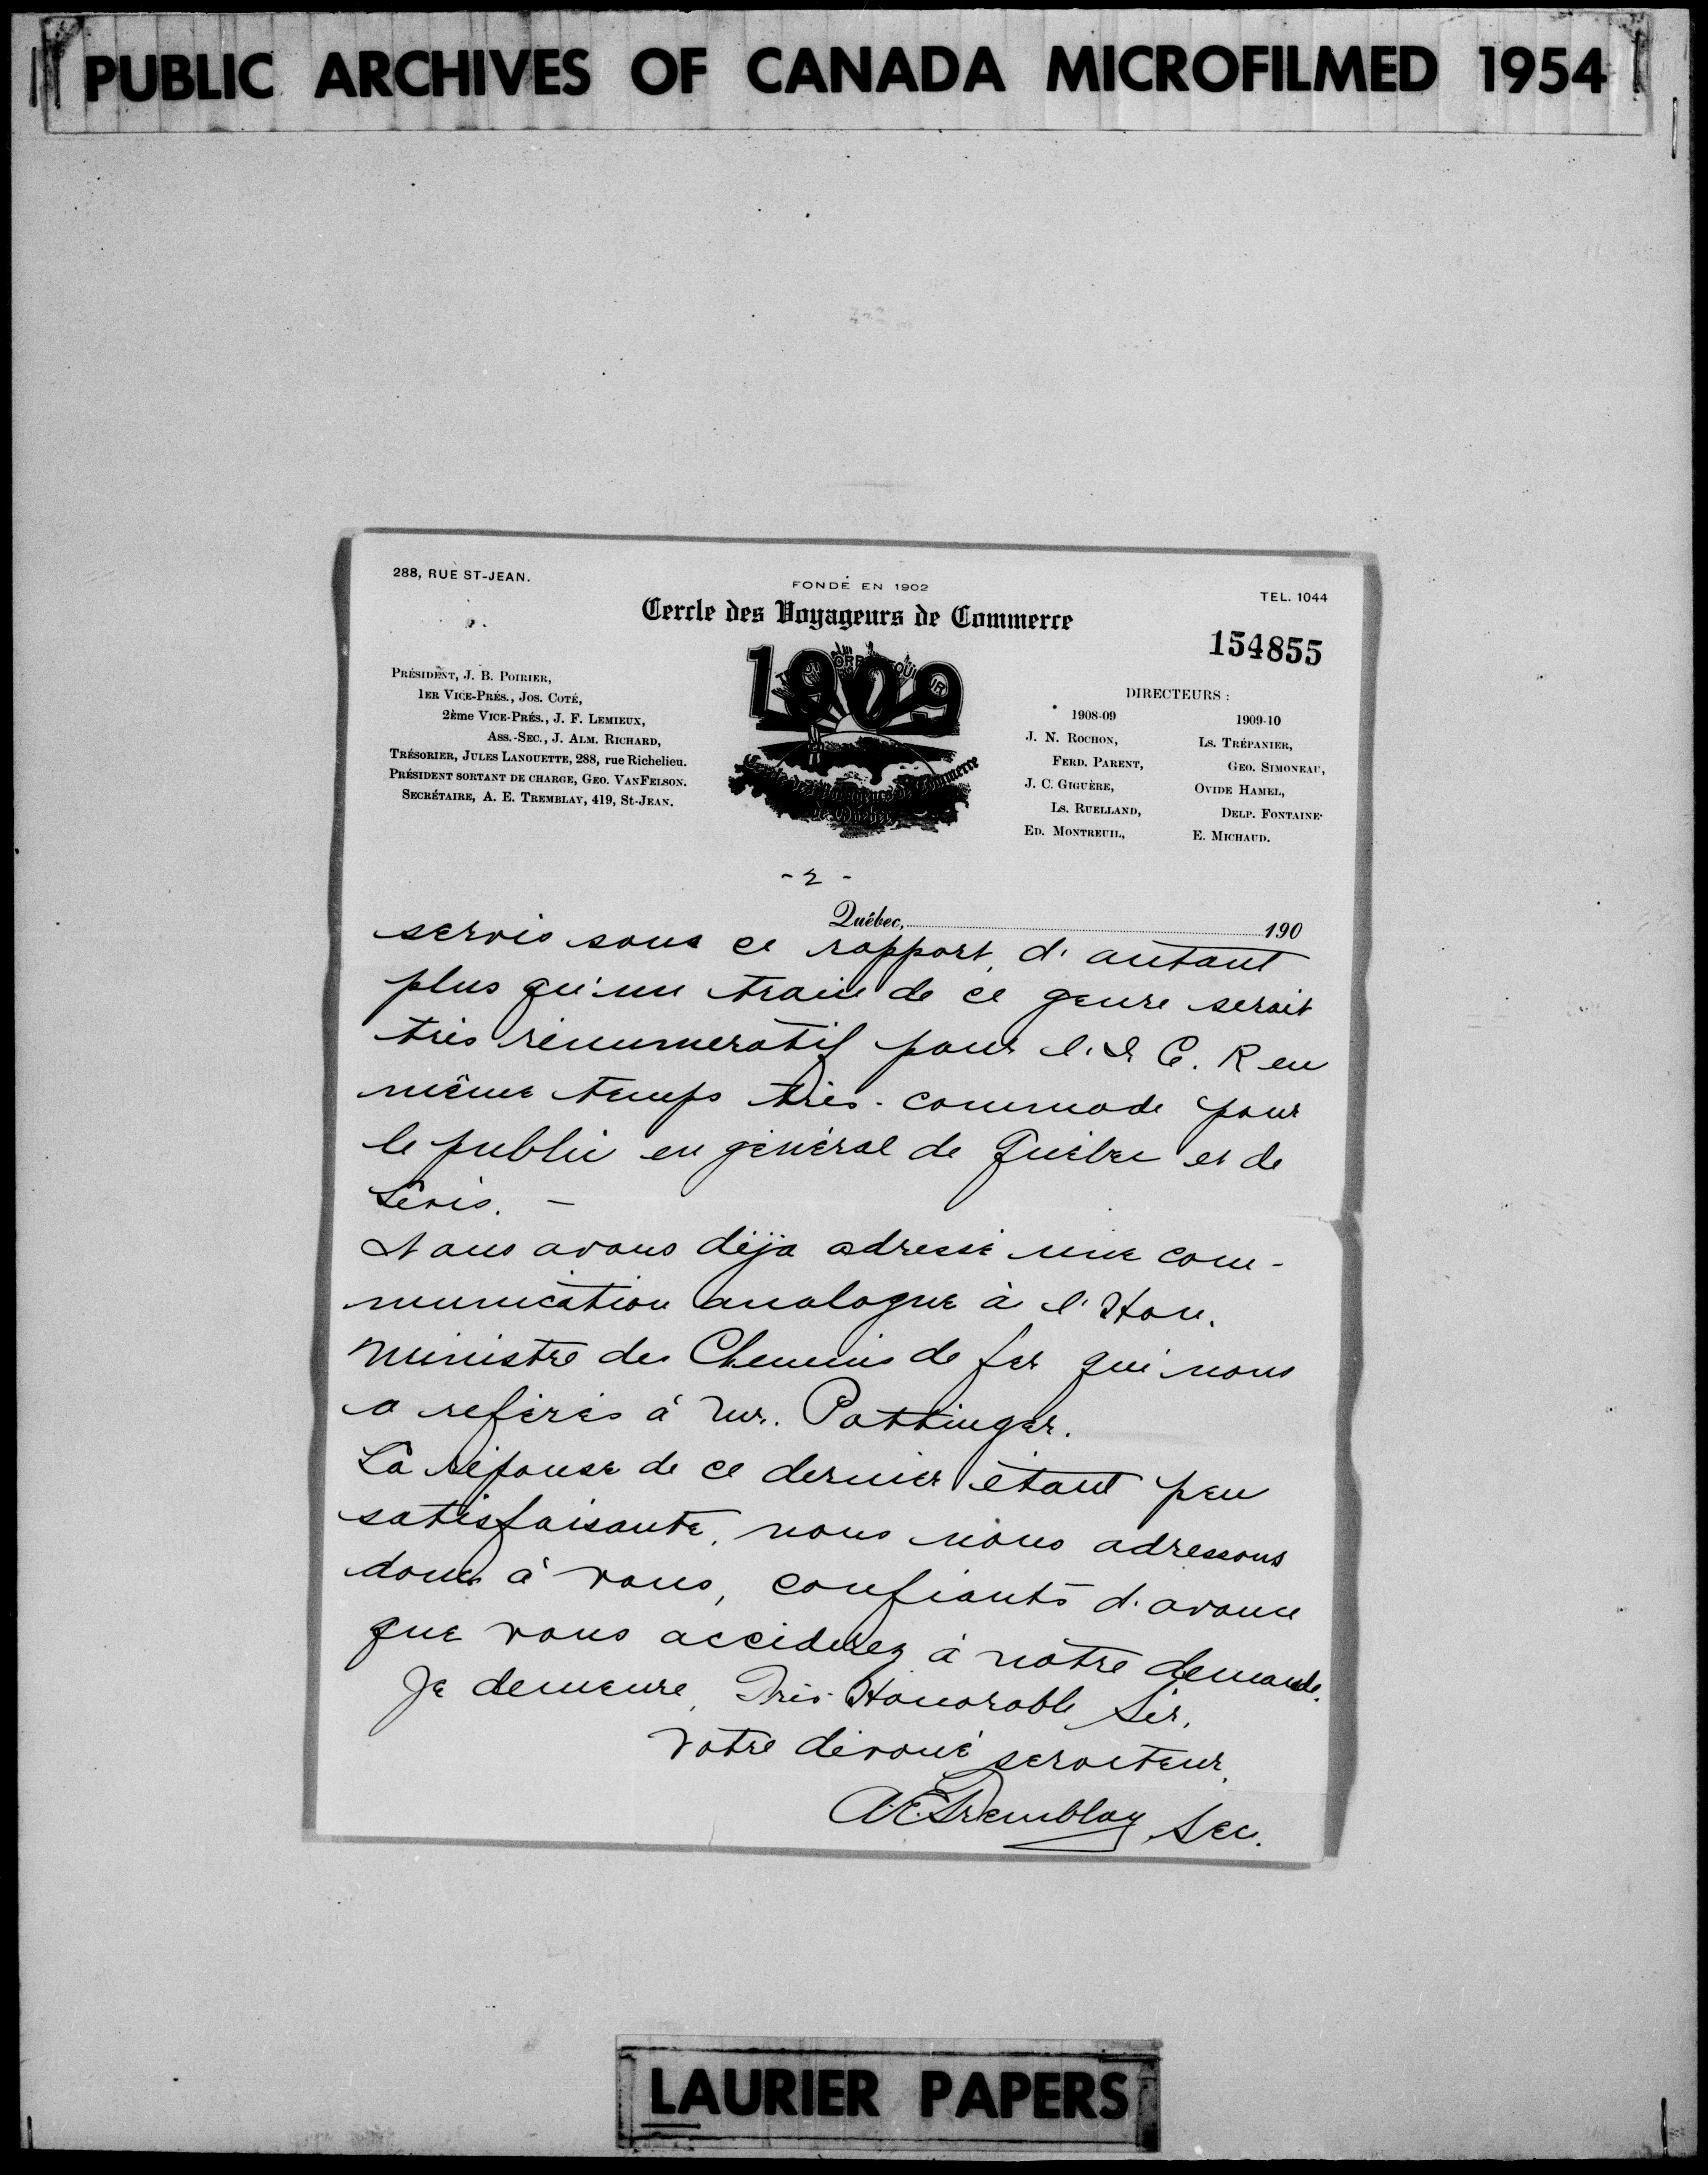 PUBLIC ARCHIVES OF CANADA MICROFILMED 1954
288, RUE ST-JEAN.
FONDÉ EN 1902
TEL. 1044
Cercle des Voyageurs de Commerce
154855
1909
Cercle des Voyageurs de Commerce
de Québec
PRÉSIDENT, J. B. POIRIER,
1ER VICE-PRÉS., JOS. COTÉ,
2ème VICE-PRÉS., J. F. LEMIEUX,
ASS.-SEC., J. ALM. RICHARD,
TRÉSORIER, JULES LANOUETTE, 288, rue Richelieu.
PRÉSIDENT SORTANT DE CHARGE, GEO. VANFELSON.
SECRÉTAIRE, A. E. TREMBLAY, 419, ST-JEAN.
DIRECTEURS :
1908-09
1909-10
J. N. ROCHON,
LS. TRÉPANIER,
FERD. PARENT,
GEO. SIMONEAU,
J. C. GIGUÈRE,
OVIDE HAMEL,
LS. RUELLAND,
DELP. FONTAINE.
ED. MONTREUIL,
E. MICHAUD.
- 2 -
Québec, 190
servis sous ce rapport, d'autant
plus qu'un train de ce genre serait
très rénumeratif pour l'I. C. R en
même temps très-commode pour
le public en général de Québec et de
Lévis. –
Nous avons déjà adressé une com-
munication analogue à l'Hon.
Ministre des Chemins de fer qui nous
a referés à Mr. Pottinger.
La réponse de ce dernier étant peu
satisfaisante, nous nous adressons
donc à vous, confiants d'avance
que vous accéderez à notre demande.
Je demeure, Très-Honorable Sir,
Votre dévoué serviteur,
A.E.Tremblay Sec.
LAURIER PAPERS